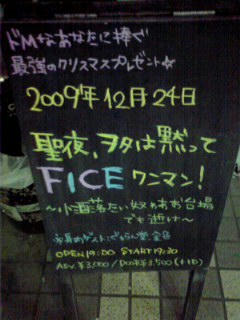 ドMなあなたに捧ぐ
最強のクリスマスプレゼント☆
2009年12月24日
聖夜、ヲタは黙って
FICEワンマン!
～小洒落たい奴わお台場
でも逝け～
OPEN 19:00 START 19:30
ADV.¥3,000 / DOOR¥3,500 (+1D)